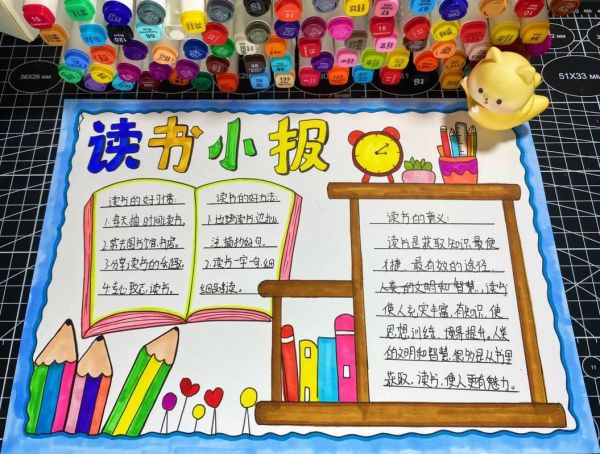 36X26 MM
51X33 MM
读书小报
读书的好习惯:
1.每天抽时间读书.
2.常去图书馆.书店.
3.分享读书的乐趣.
4.专心致志.读书.
读书的好方法:
1.边读书边批
注.摘抄好句.
2.读书一字一句.细
细品读.
读书的意义:
读书是获取知识最便
捷、最有效的途径,
人类的文明和智慧,读书
使人充实丰富,有知识,使
思想训练,境界提升。人类
的文明和智慧,很多是从书里
获取,读书,使人更有魅力。